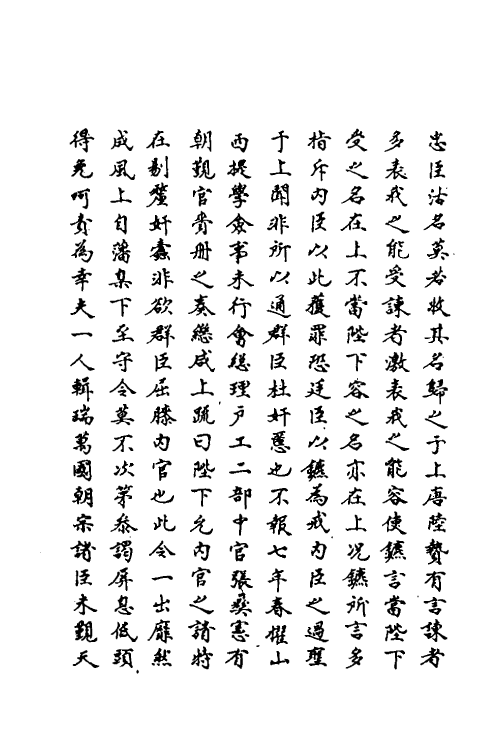 忠臣沽名莫若收其名歸之于上唐陸贄有言諫者
多表我之能受諫者激表我之能容使鑛言當陛下
受之名在上不當陛下容之名亦在上况鑛所言多
指斥内臣以此獲罪恐廷臣以鑛為戒内臣之過聖
于上聞非所以通群臣杜奸慝也不報七年春擢山
西提學僉事未行會總理戶工二部中官張彝憲有
朝覲官賫册之奏繼咸上疏曰陛下允内官之請特
在剔釐奸蠹非欲群臣屈膝内官也此令一出靡然
成風上自藩臬下至守令莫不次第叅謁屏息低頭
得免呵責為幸夫一人輯瑞萬國朝宗諸臣未覲天